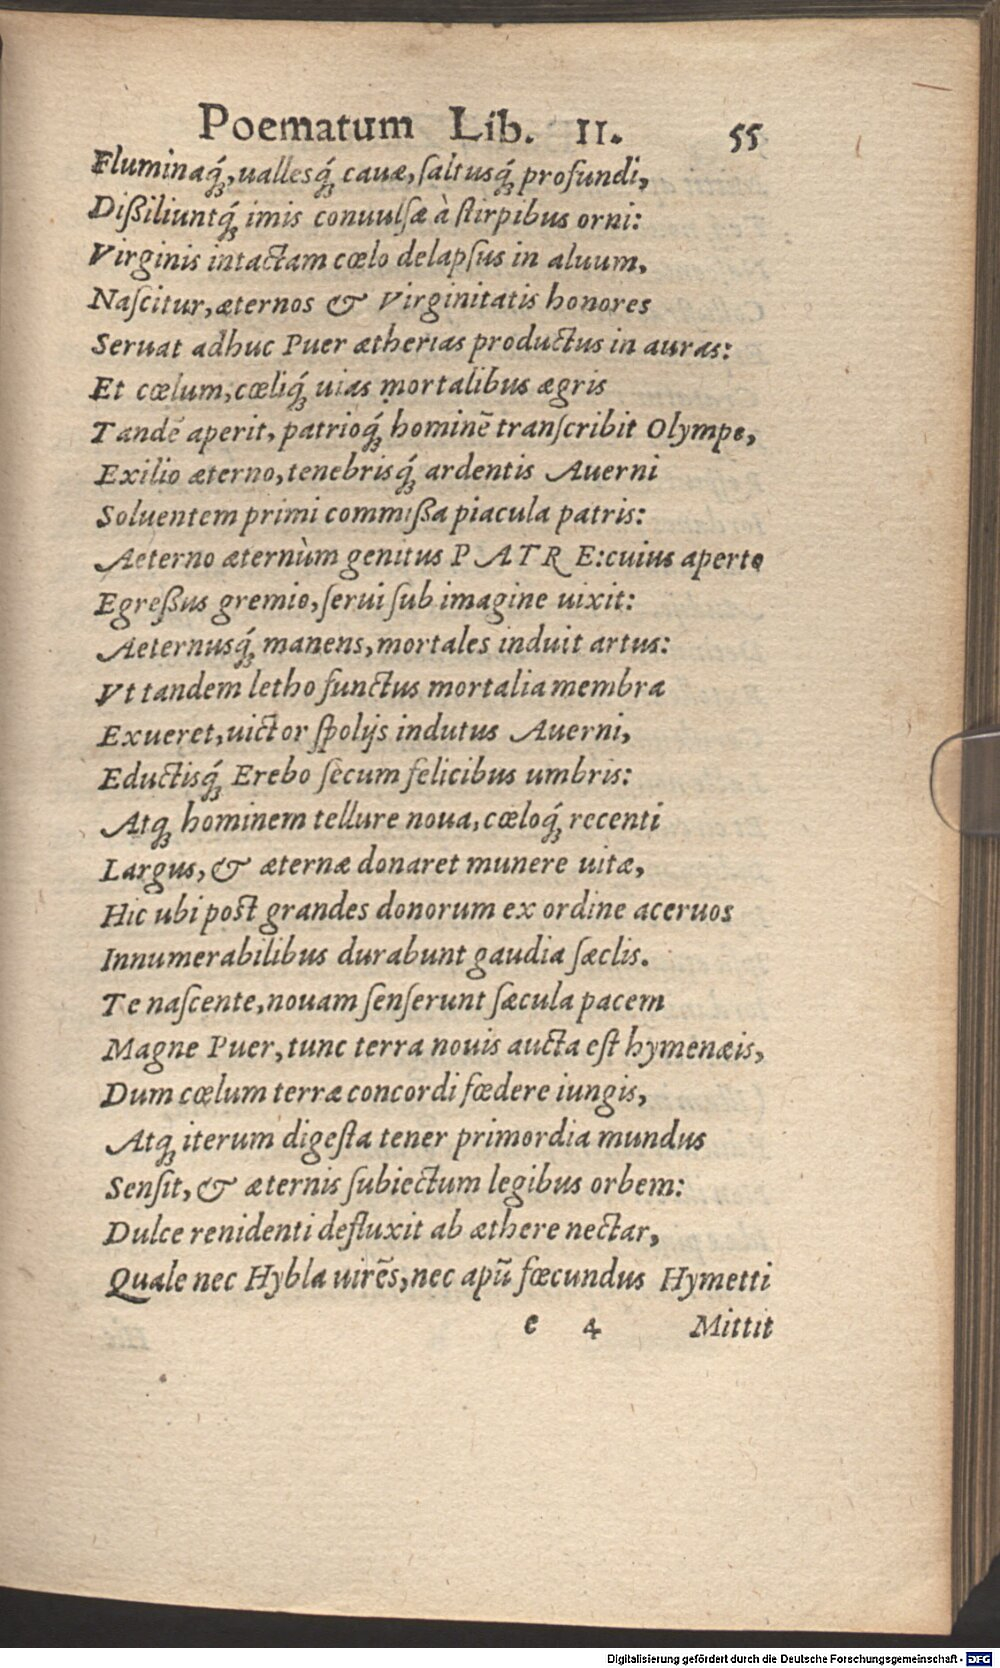 Poematum Lib. II. 55
Fluminaq́ꝫ, uallesq́ꝫ cauæ, ſaltusq́ꝫ profundi,
Dißiliuntq́ꝫ imis conuulſæ à ſtirpibus orni:
Virginis intactam cœlo delapſus in aluum,
Naſcitur, æternos & Virginitatis honores
Seruat adhuc Puer ætherias productus in auras:
Et cœlum, cœliq́ꝫ uias mortalibus ægris
Tandē aperit, patrioq́ꝫ hominē tranſcribit Olympo,
Exilio æterno, tenebrisq́ꝫ ardentis Auerni
Soluentem primi commißa piacula patris:
Aeterno æternùm genitus PATRE: cuius aperto
Egreßus gremio, ſerui ſub imagine uixit:
Aeternusq́ꝫ manens, mortales induit artus:
Vt tandem letho functus mortalia membra
Exueret, uictor ſpolijs indutus Auerni,
Eductisq́ꝫ Erebo ſecum felicibus umbris:
Atqꝫ hominem tellure noua, cœloq́ꝫ recenti
Largus, & æternæ donaret munere uitæ,
Hic ubi poſt grandes donorum ex ordine aceruos
Innumerabilibus durabunt gaudia ſæclis.
Te naſcente, nouam ſenſerunt ſæcula pacem
Magne Puer, tunc terra nouis aucta eſt hymenæis,
Dum cœlum terræ concordi fœdere iungis,
Atqꝫ iterum digeſta tener primordia mundus
Senſit, & æternis ſubiectum legibus orbem:
Dulce renidenti defluxit ab æthere nectar,
Quale nec Hybla uirēs, nec apū fœcundus Hymetti
e 4 Mittit
Digitalisierung gefördert durch die Deutsche Forschungsgemeinschaft - DFG